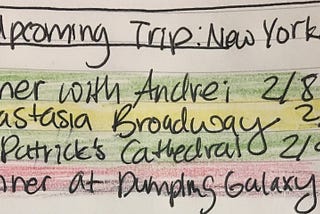 Upcoming Trip: New York
ner with Andrei 2/8
astasia Broadway 2/
Patrick's Cathedral 2/
nner at Dumpling Galaxy